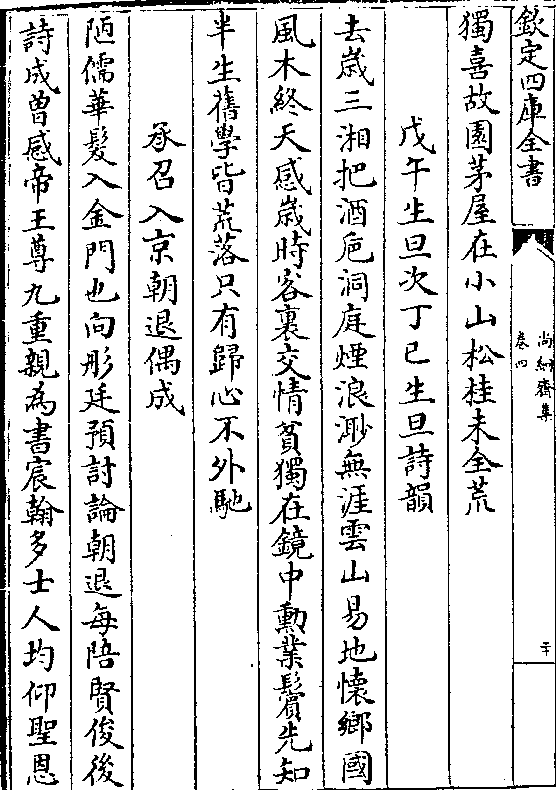 欽定四庫全書
尚絅齋集
卷四
二十
獨喜故園茅屋在小山松桂未全荒
戊午生旦次丁巳生旦詩韻
去歲三湘把酒卮洞庭煙浪渺無涯雲山易地懷鄉國
風木終天感歲時客裏交情貧獨在鏡中勳業鬢先知
半生舊學皆荒落只有歸心不外馳
承召入京朝退偶成
陋儒華髮入金門也向彤廷預討論朝退每陪賢俊後
詩成曾感帝王尊九重親為書宸翰多士人均仰聖恩